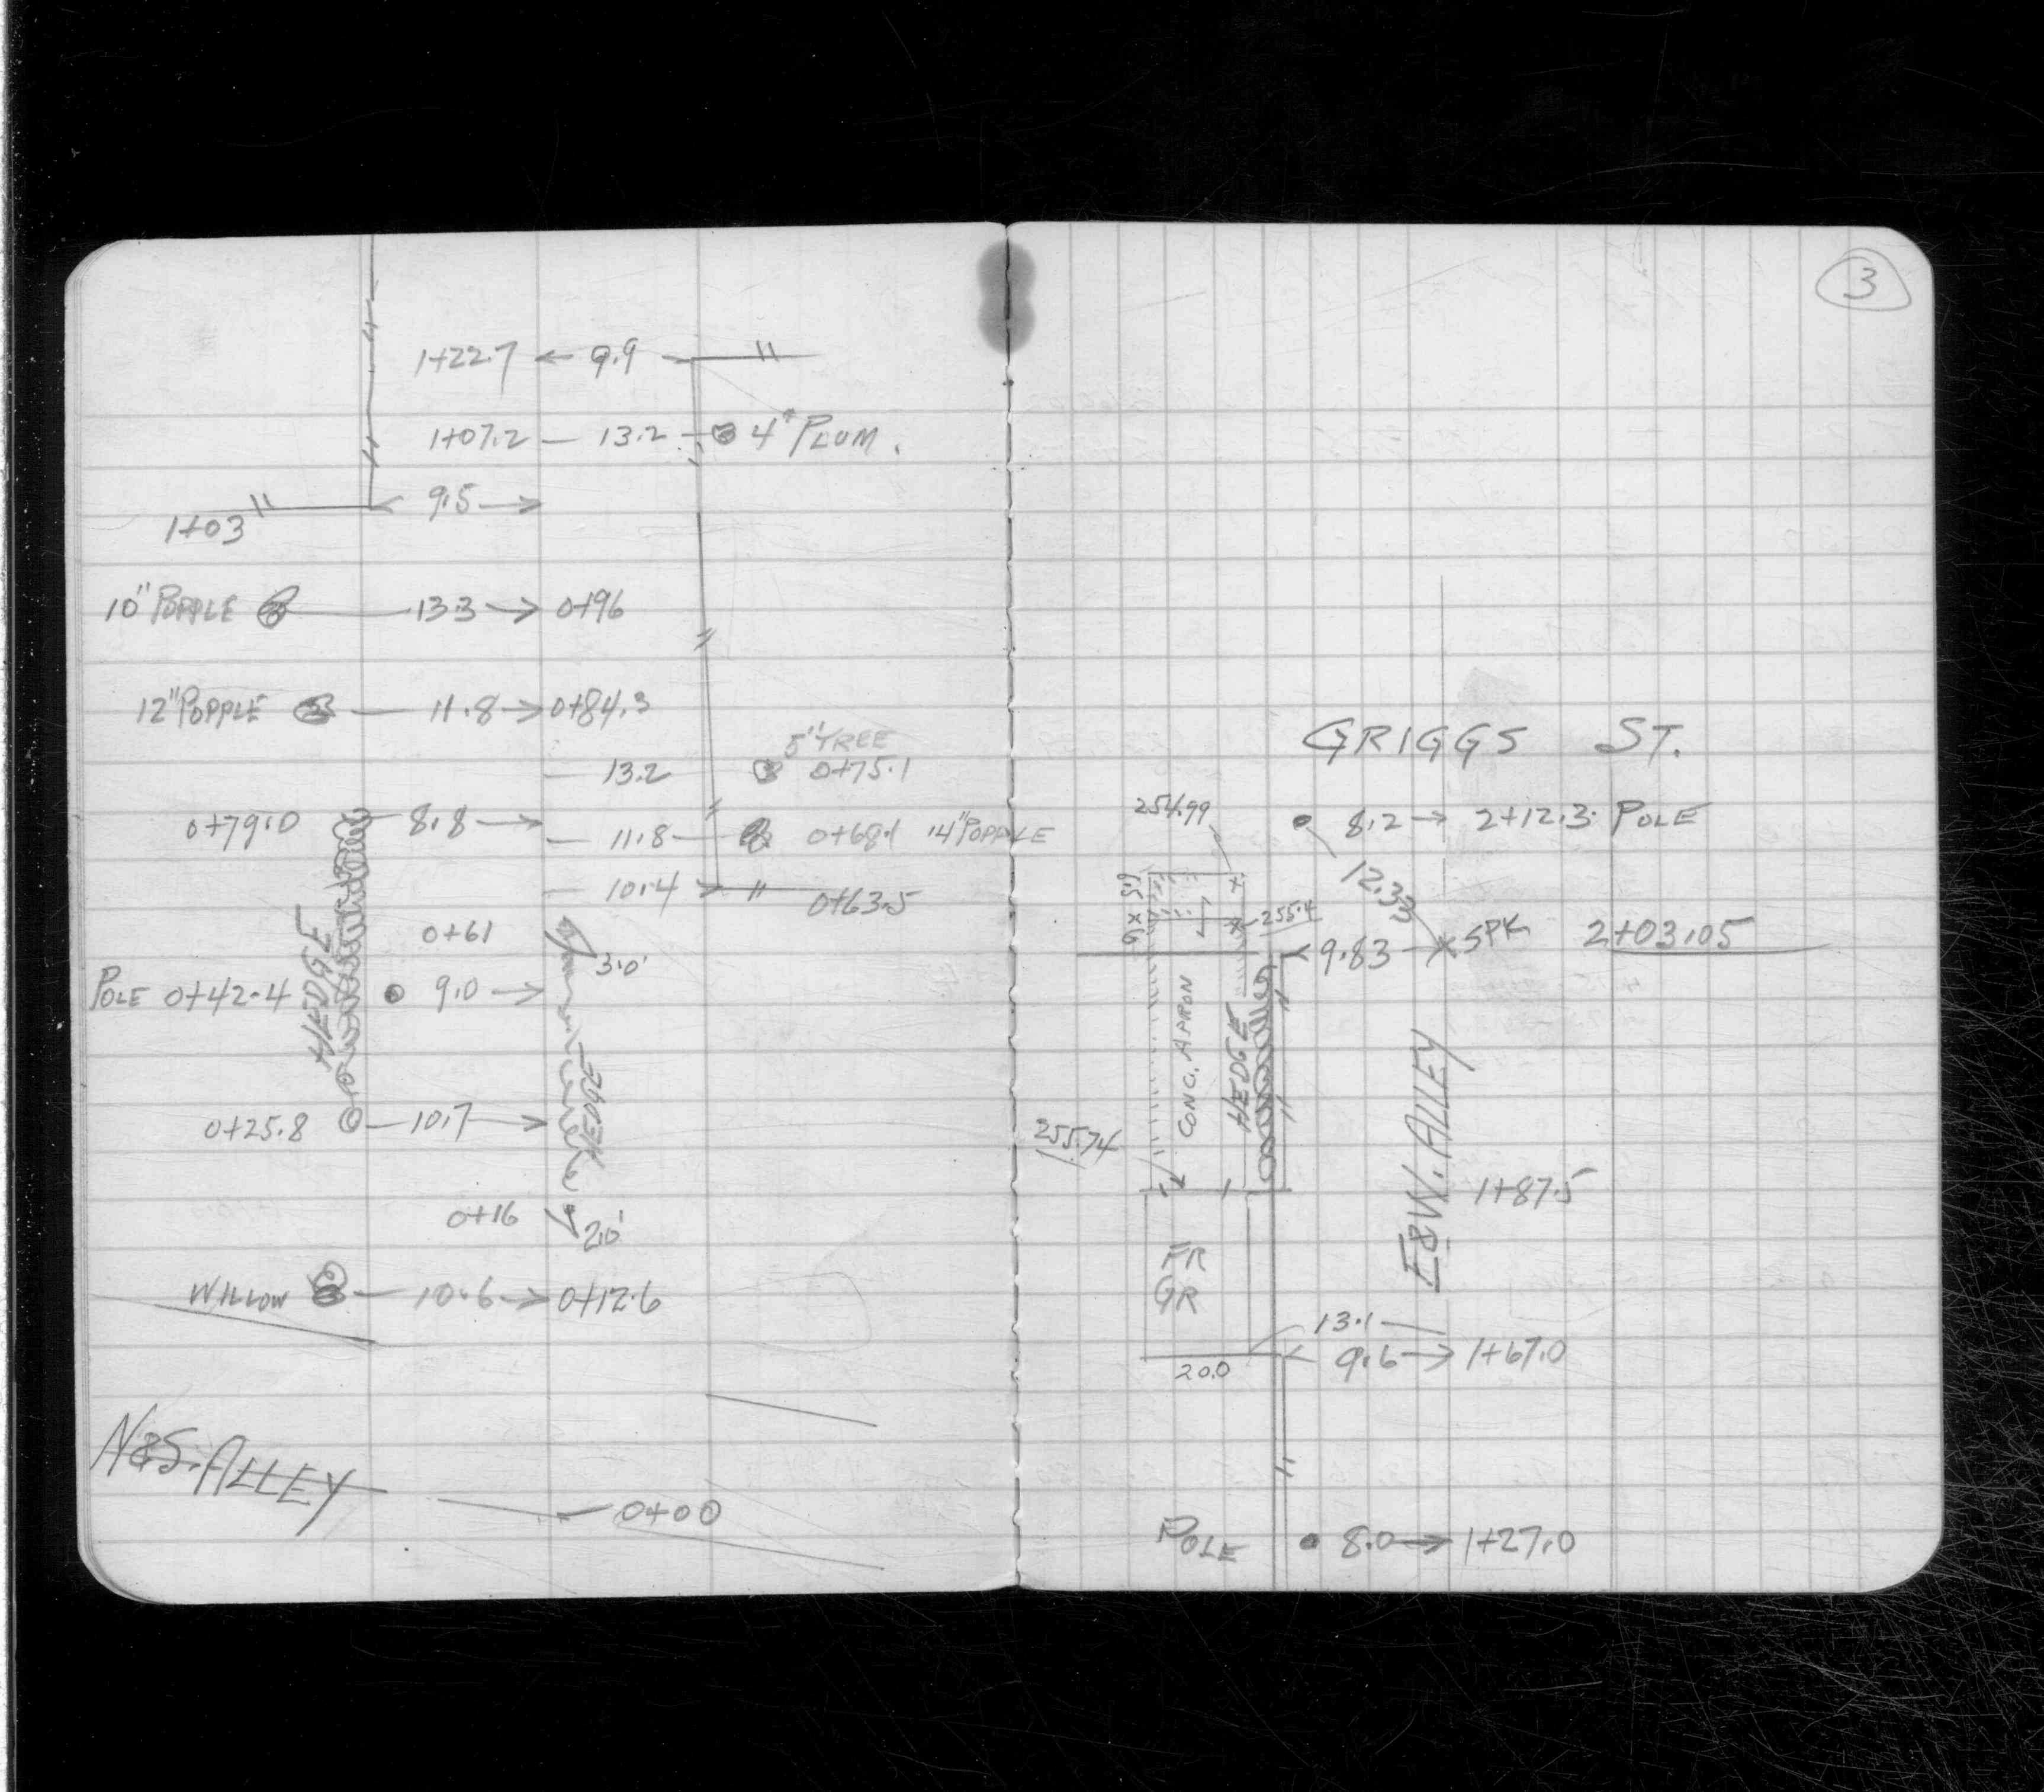 1+22.7 ← 9.9
1+07.2 — 13.2 4" PLUM.
9.5 →
1+03
10" POPPLE 13.3 → 0+96
12" POPPLE 11.8 → 0+84.3
5" TREE
13.2 0+75.1
0+79.0 8.8 →
11.8 0+68.1 14" POPPLE
10.4 → 0+63.5
HEDGE
0+61
3.0'
POLE 0+42.4 9.0 →
HEDGE
0+25.8 10.7 →
0+16
2.0'
WILLOW 10.6 → 0+12.6
N&S. ALLEY
0+00
3
GRIGGS ST.
254.99
8.2 → 2+12.3 POLE
12.33
6 x 6.5
255.4
9.83 SPK 2+03.05
CONC. APRON
HEDGE
255.74
E&W. ALLEY
1+87.5
FR
GR
13.1
9.6 → 1+67.0
20.0
POLE 8.0 → 1+27.0